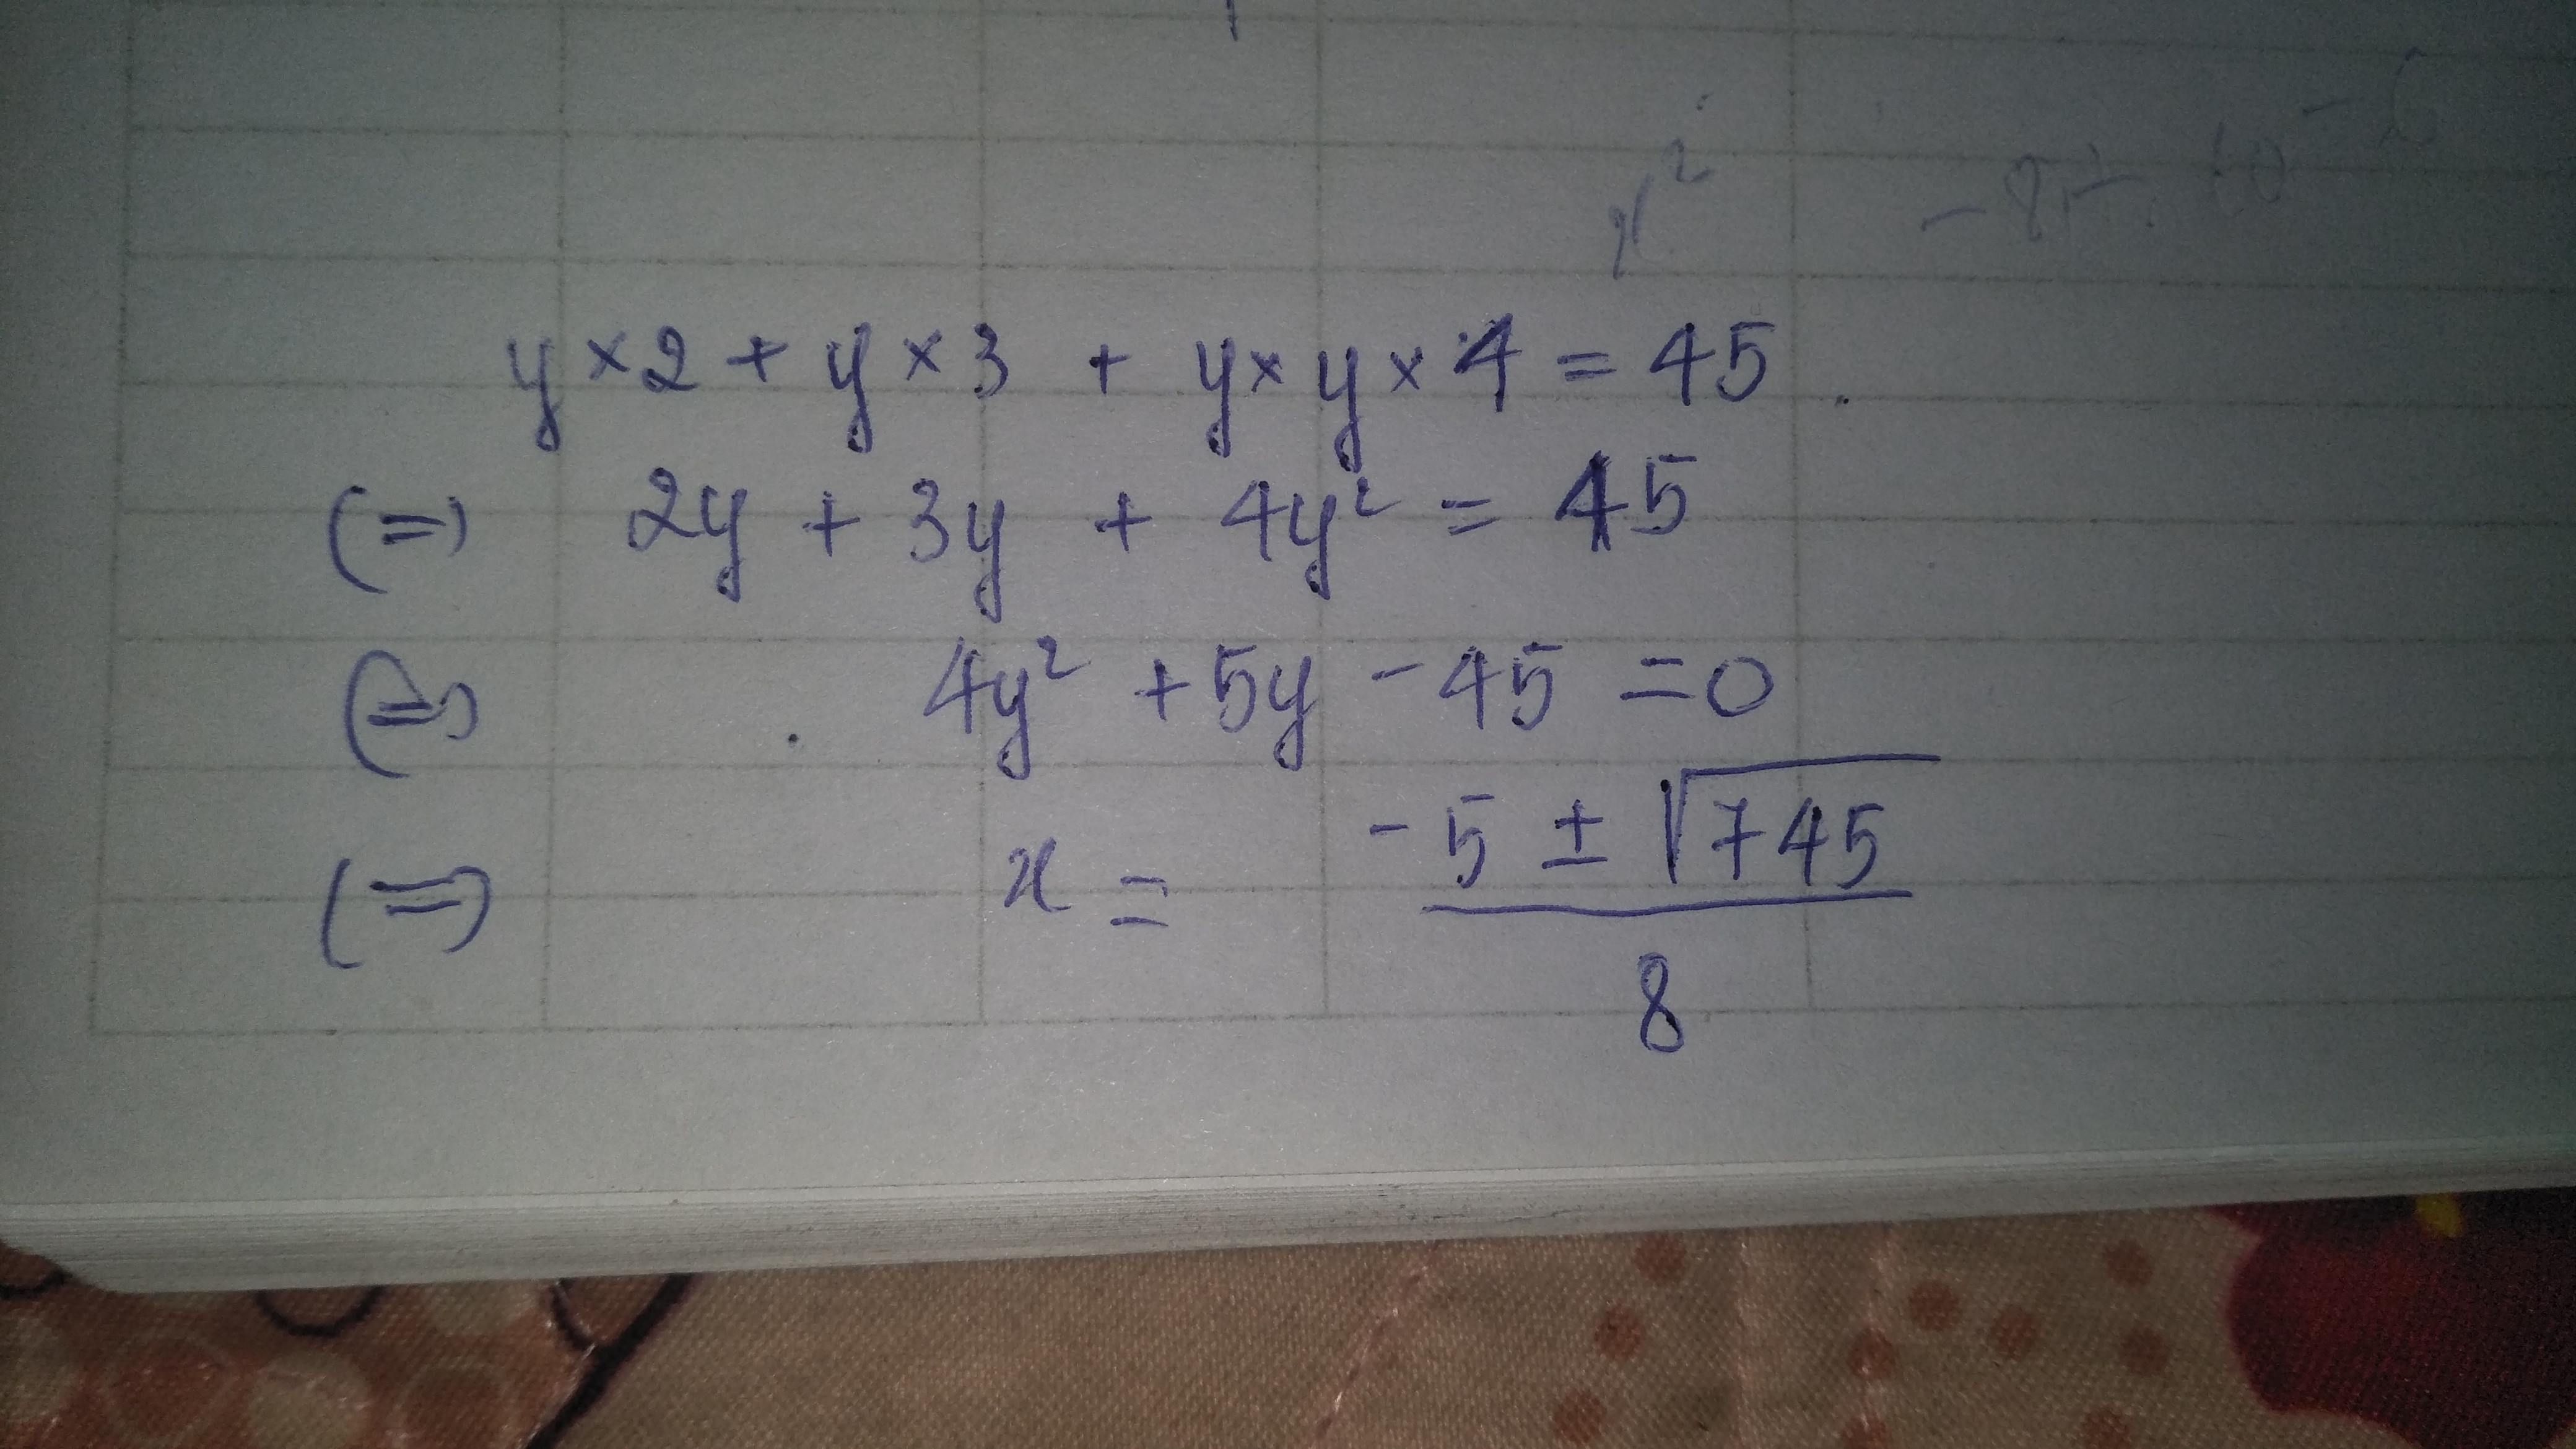 y × 2 + y × 3 + y × y × 4 = 45.
(=) 2y + 3y + 4y² = 45
(=) 4y² + 5y - 45 = 0
(=) x = (-5 ± √745) / 8